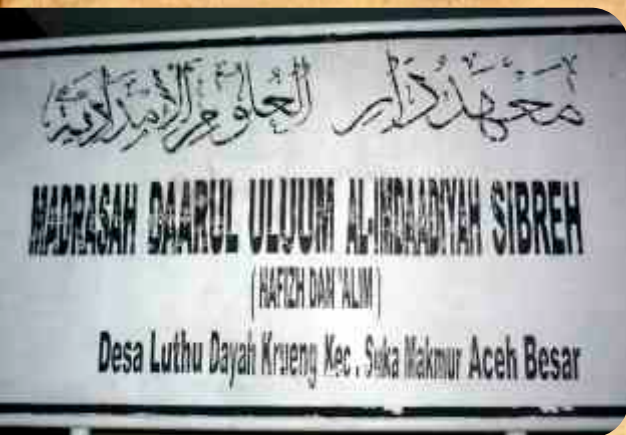 معهد دار العلوم الإمدادية
MADRASAH DAARUL ULUUM AL-IMDAADIYAH SIBREH
( HAFIZH DAN 'ALIM )
Desa Luthu Dayah Krueng Kec. Suka Makmur Aceh Besar